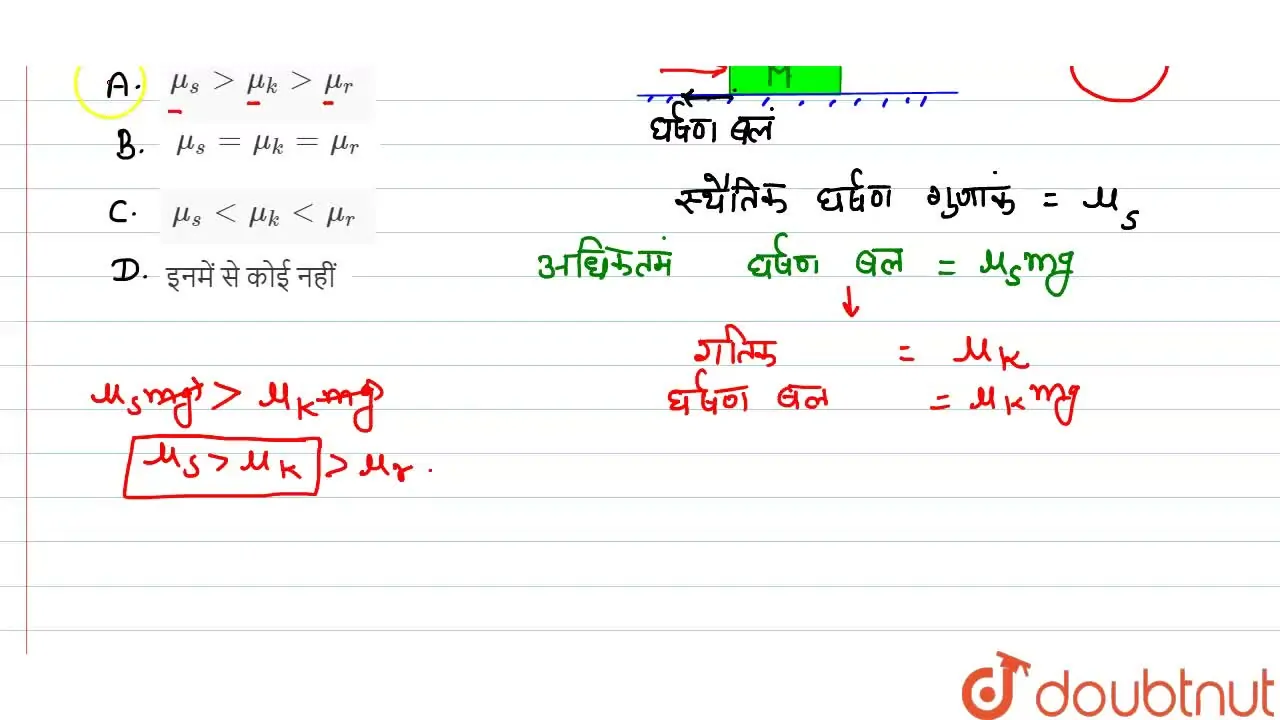 A. μₛ > μₖ > μᵣ
B. μₛ = μₖ = μᵣ
C. μₛ < μₖ < μᵣ
D. इनमें से कोई नहीं
M
घर्षण बल
स्थैतिक घर्षण गुणांक = μₛ
अधिकतम घर्षण बल = μₛmg
गतिक = μₖ
घर्षण बल = μₖmg
μₛmg > μₖmg
μₛ > μₖ > μᵣ
doubtnut